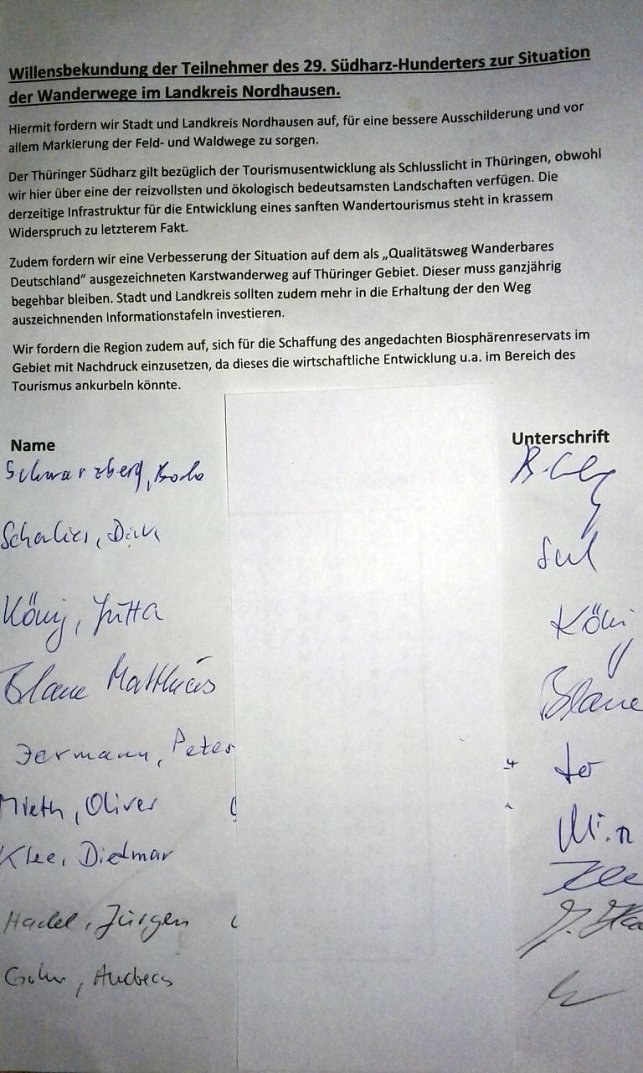 Willensbekundung der Teilnehmer des 29. Südharz-Hunderters zur Situation
der Wanderwege im Landkreis Nordhausen.
Hiermit fordern wir Stadt und Landkreis Nordhausen auf, für eine bessere Ausschilderung und vor
allem Markierung der Feld- und Waldwege zu sorgen.
Der Thüringer Südharz gilt bezüglich der Tourismusentwicklung als Schlusslicht in Thüringen, obwohl
wir hier über eine der reizvollsten und ökologisch bedeutsamsten Landschaften verfügen. Die
derzeitige Infrastruktur für die Entwicklung eines sanften Wandertourismus steht in krassem
Widerspruch zu letzterem Fakt.
Zudem fordern wir eine Verbesserung der Situation auf dem als „Qualitätsweg Wanderbares
Deutschland" ausgezeichneten Karstwanderweg auf Thüringer Gebiet. Dieser muss ganzjährig
begehbar bleiben. Stadt und Landkreis sollten zudem mehr in die Erhaltung der den Weg
auszeichnenden Informationstafeln investieren.
Wir fordern die Region zudem auf, sich für die Schaffung des angedachten Biosphärenreservats im
Gebiet mit Nachdruck einzusetzen, da dieses die wirtschaftliche Entwicklung u.a. im Bereich des
Tourismus ankurbeln könnte.
Name Unterschrift
Schwarzberg, Bodo
Dirk
König, Jutta
Matthias
Jermann, Peter
Mieth, Oliver
Klee, Dietmar
Jürgen
Andreas